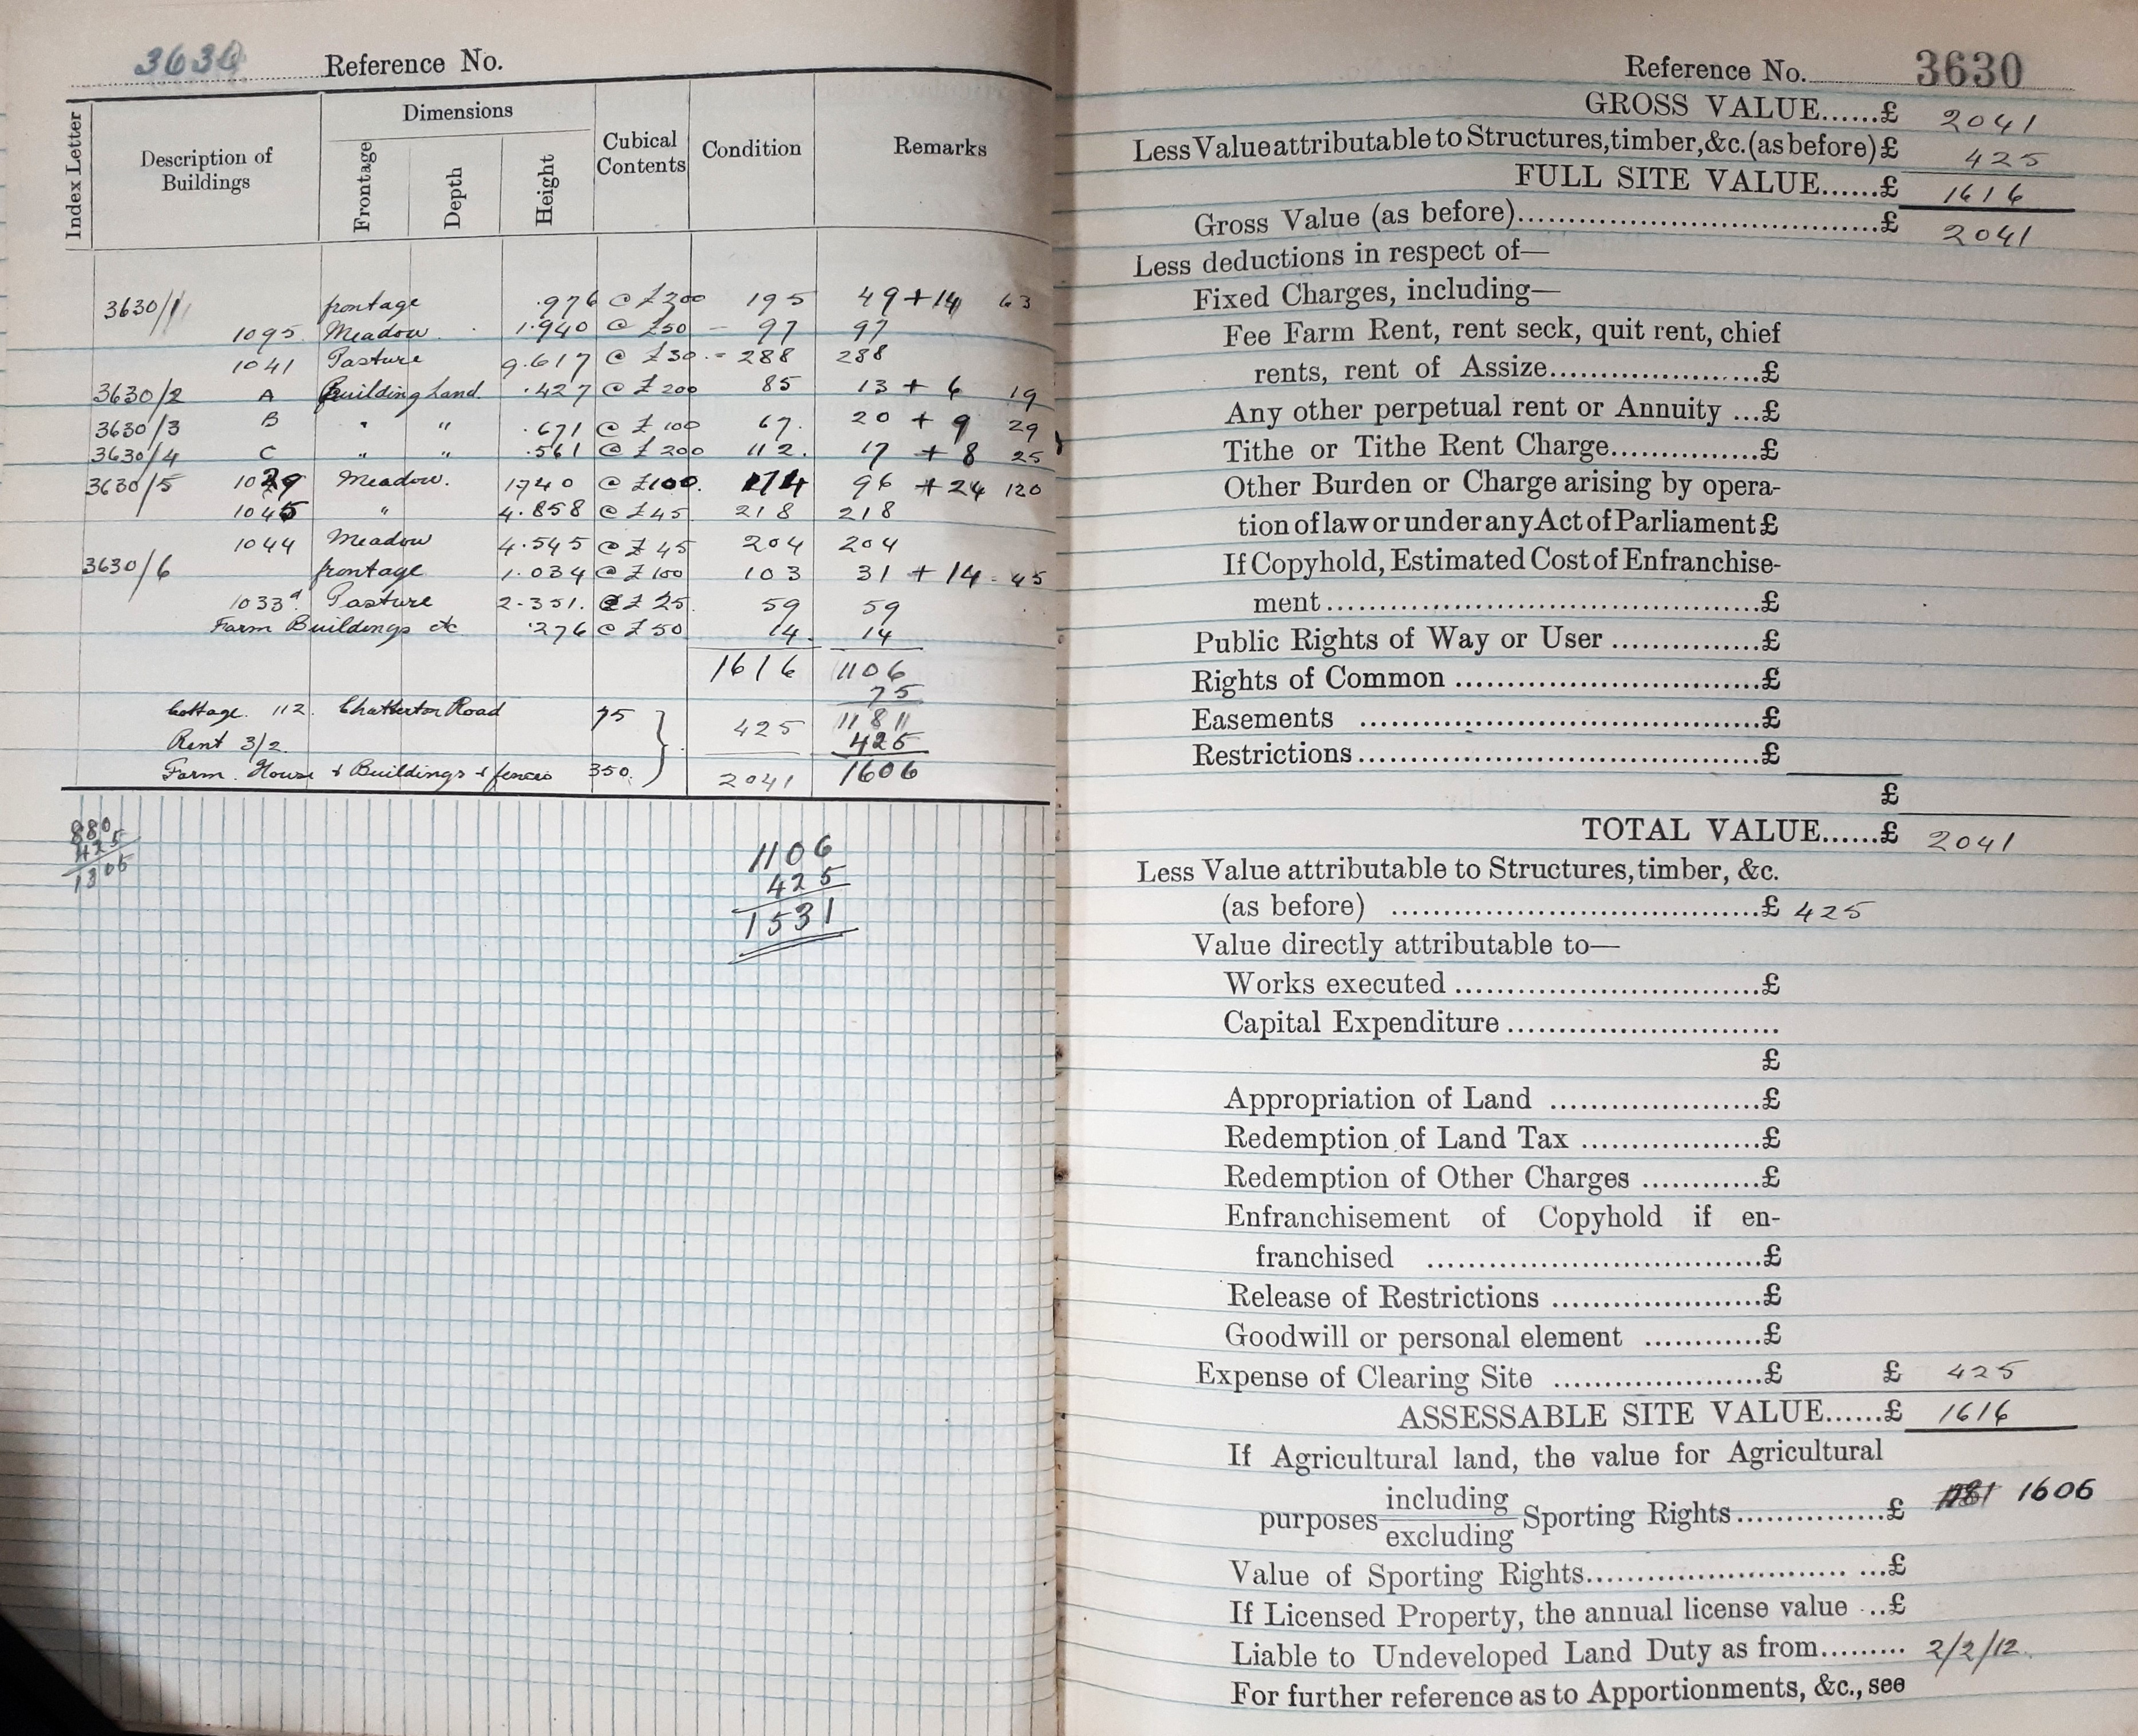 3630 Reference No.
Index Letter
Description of Buildings
Dimensions
Frontage
Depth
Height
Cubical Contents
Condition
Remarks
3630/1 frontage .976 @ £200 195 49 + 14 63
1095 Meadow 1.940 @ £50 - 97 97
1041 Pasture 9.617 @ £30 - 288 288
3630/2 A Building Land .427 @ £200 85 13 + 6 19
3630/3 B " " .671 @ £100 67. 20 + 9 29
3630/4 C " " .561 @ £200 112. 17 + 8 25
3630/5 1039 Meadow. 1740 @ £100. 174 96 + 24 120
1045 " 4.858 @ £45 218 218
1044 Meadow 4.545 @ £45 204 204
3630/6 frontage 1.034 @ £100 103 31 + 14 = 45
1033a Pasture 2.351. @ £25 59 59
Farm Buildings etc .276 @ £50 14. 14
1616 1106
75
Cottage. 112. Chatterton Road 75 425 1181
Rent 3/2. 425
Farm House & Buildings & fences 350. 2041 1606
880
425
1305
1106
425
1531
Reference No. 3630
GROSS VALUE......£ 2041
Less Value attributable to Structures, timber, &c. (as before) £ 425
FULL SITE VALUE......£ 1616
Gross Value (as before)..........£ 2041
Less deductions in respect of—
Fixed Charges, including—
Fee Farm Rent, rent seck, quit rent, chief
rents, rent of Assize..........£
Any other perpetual rent or Annuity ...£
Tithe or Tithe Rent Charge..........£
Other Burden or Charge arising by opera-
tion of law or under any Act of Parliament £
If Copyhold, Estimated Cost of Enfranchise-
ment..........£
Public Rights of Way or User..........£
Rights of Common..........£
Easements..........£
Restrictions..........£
£
TOTAL VALUE......£ 2041
Less Value attributable to Structures, timber, &c.
(as before)..........£ 425
Value directly attributable to—
Works executed..........£
Capital Expenditure..........
£
Appropriation of Land..........£
Redemption of Land Tax..........£
Redemption of Other Charges..........£
Enfranchisement of Copyhold if en-
franchised..........£
Release of Restrictions..........£
Goodwill or personal element..........£
Expense of Clearing Site..........£ £ 425
ASSESSABLE SITE VALUE......£ 1616
If Agricultural land, the value for Agricultural
purposes including excluding Sporting Rights..........£ 1181 1606
Value of Sporting Rights..........£
If Licensed Property, the annual license value ...£
Liable to Undeveloped Land Duty as from......... 2/2/12.
For further reference as to Apportionments, &c., see